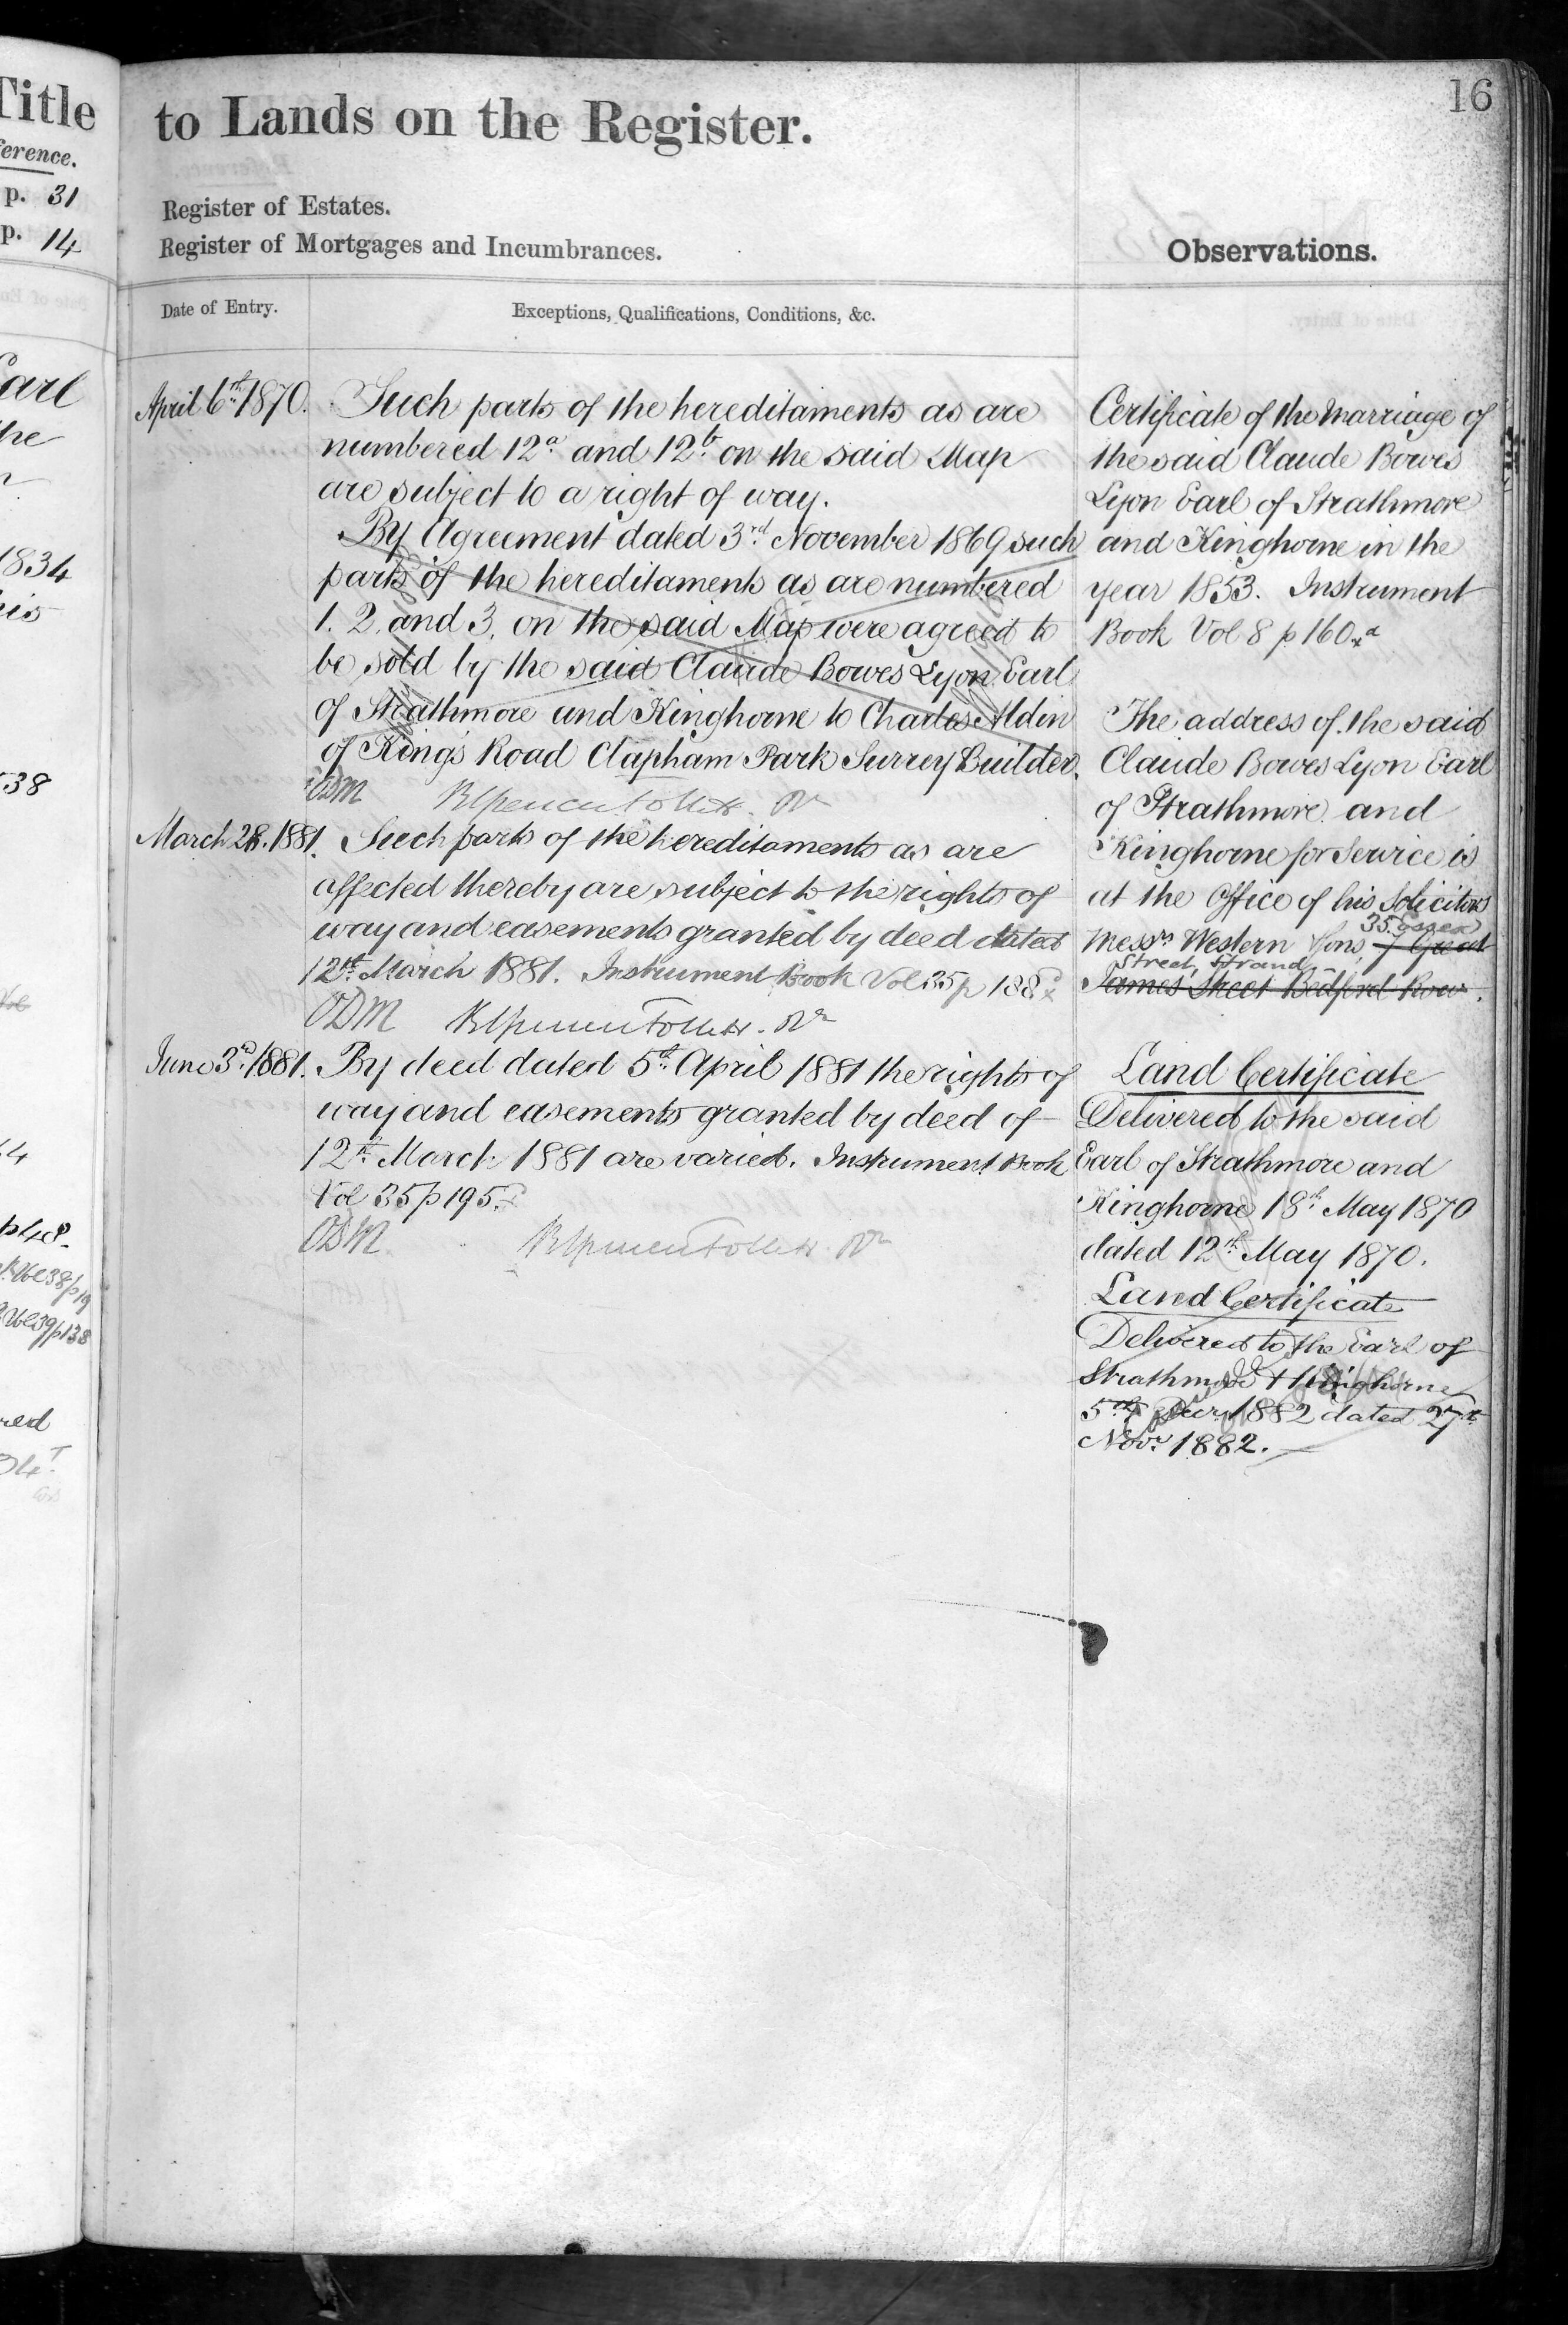 Title
ference.
p. 31
p. 14
Earl
the
1834
his
538
p48
Vol 38 p19
Vol 39 p138
red
16
to Lands on the Register.
Register of Estates.
Register of Mortgages and Incumbrances.
Date of Entry.
Exceptions, Qualifications, Conditions, &c.
April 6th 1870.
Such parts of the hereditaments as are
numbered 12a and 12b on the said Map
are subject to a right of way.
By Agreement dated 3rd November 1869 such
parts of the hereditaments as are numbered
1. 2. and 3. on the said Map were agreed to
be sold by the said Claude Bowes Lyon Earl
of Strathmore and Kinghorne to Charles Aldin
of King's Road Clapham Park Surrey Builder.
ODM
March 28. 1881.
Such parts of the hereditaments as are
affected thereby are subject to the rights of
way and easements granted by deed dated
12th March 1881. Instrument Book Vol 35 p 188
ODM
June 3rd 1881.
By deed dated 5th April 1881 the rights of
way and easements granted by deed of
12th March 1881 are varied. Instrument Book
Vol 35 p 195
ODM
Observations.
Certificate of the Marriage of
the said Claude Bowes
Lyon Earl of Strathmore
and Kinghorne in the
year 1853. Instrument
Book Vol 8 p 160
The address of the said
Claude Bowes Lyon Earl
of Strathmore and
Kinghorne for Service is
at the Office of his Solicitors
35 Essex
Messrs Western & Sons, 7 Great
Street, Strand
James Street Bedford Row.
Land Certificate
Delivered to the said
Earl of Strathmore and
Kinghorne 18th May 1870
dated 12th May 1870.
Land Certificate
Delivered to the Earl of
Strathmore & Kinghorne
5th Decr 1882 dated 27th
Novr 1882.